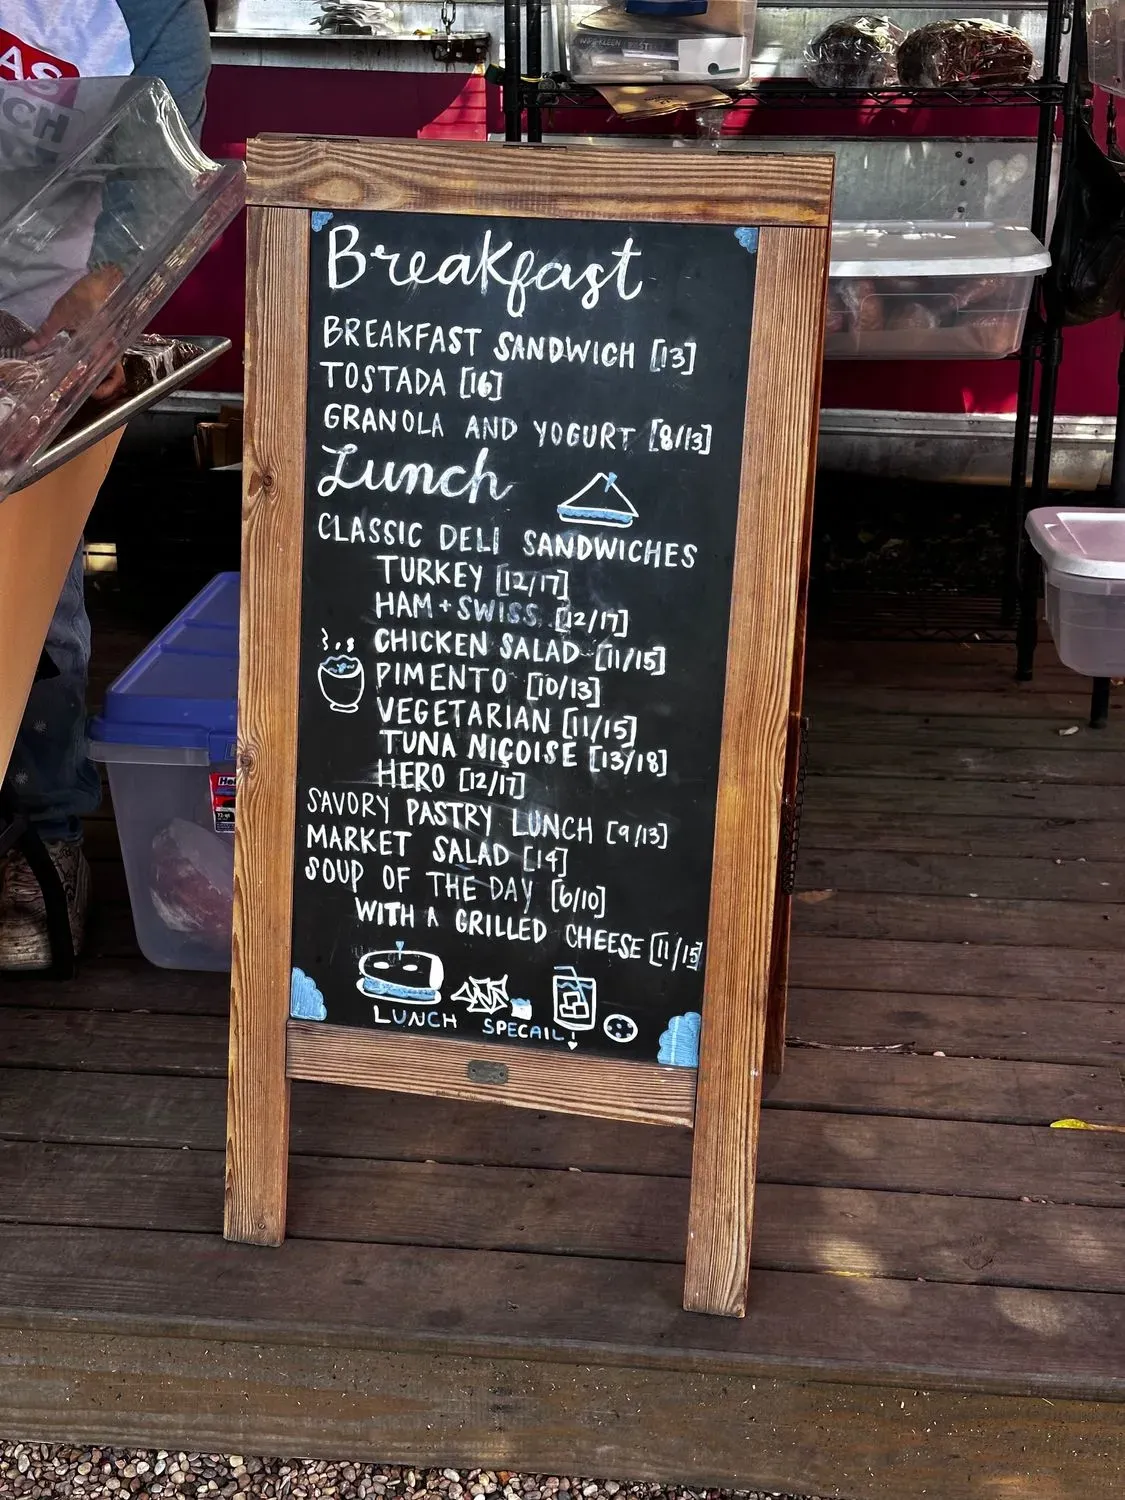 AS
CH
Breakfast
BREAKFAST SANDWICH [13]
TOSTADA [16]
GRANOLA AND YOGURT [8/13]
Lunch
CLASSIC DELI SANDWICHES
TURKEY [12/17]
HAM + SWISS [12/17]
CHICKEN SALAD [11/15]
PIMENTO [10/13]
VEGETARIAN [11/15]
TUNA NIÇOISE [13/18]
HERO [12/17]
SAVORY PASTRY LUNCH [9/13]
MARKET SALAD [14]
SOUP OF THE DAY [6/10]
WITH A GRILLED CHEESE [11/15]
LUNCH SPECAIL!